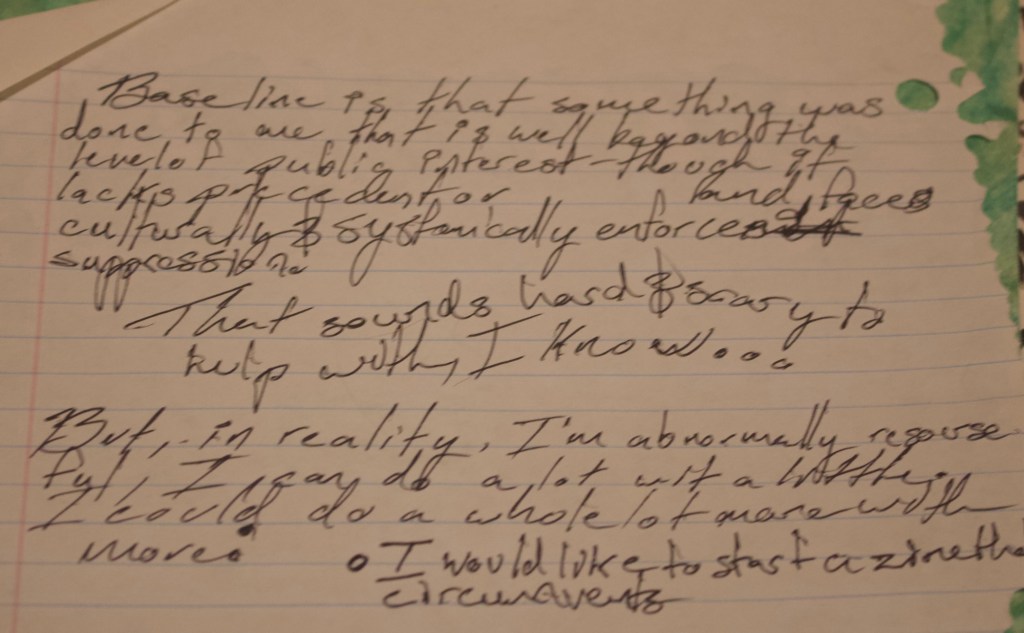 Baseline is that something was
done to me that is well beyond the
level of public interest - though it
lacks precedent or and faces
culturally & systemically enforced
suppression.
That sounds hard & scary to
help with, I know...
But, in reality, I'm abnormally resource-
ful, I can do a lot wit a little.
I could do a whole lot more with
more.
• I would like to start a zine tha
circumvents